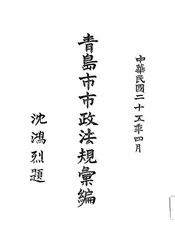 中華民國二十五年四月
青島市市政法規彙編
沈鴻烈題